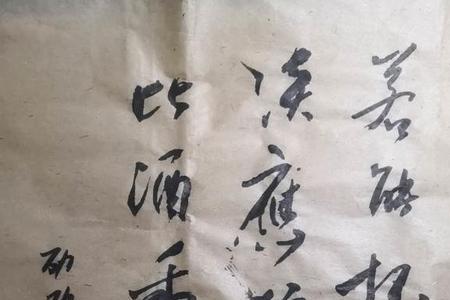 若能杯
淡應
比酒香